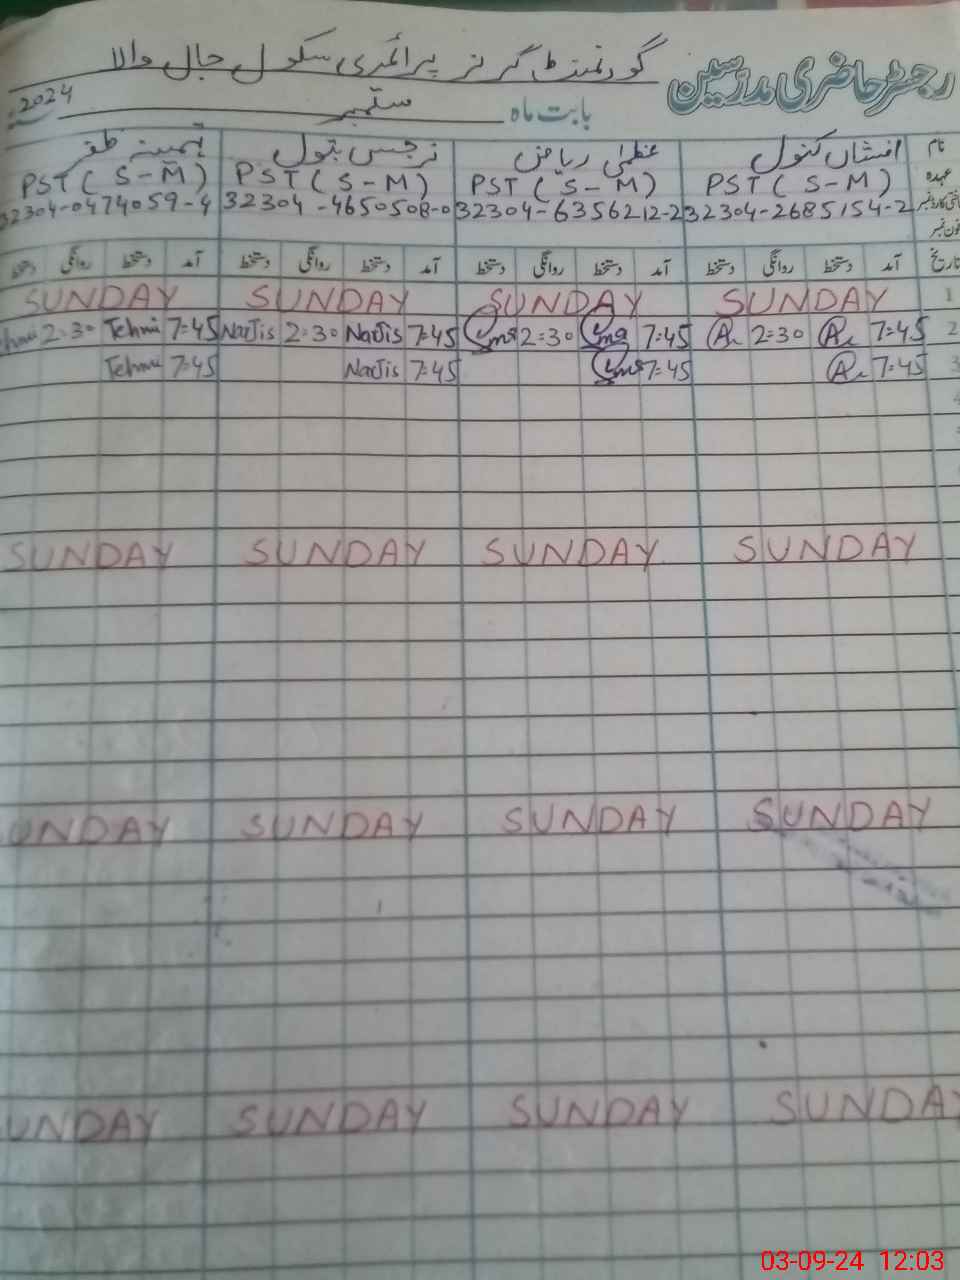 رجسٹر حاضری مدرسین گورنمنٹ گرلز پرائمری سکول جال والا
بابت ماہ ستمبر 2024
نام افشاں کنول عظمیٰ ریاض نرجس بتول تہمینہ ظفر
عہدہ PST (S-M) PST (S-M) PST (S-M) PST (S-M)
شناختی کارڈ نمبر 32304-2685154-2 32304-6356212-2 32304-4650508-0 32304-0474059-4
فون نمبر
تاریخ آمد دستخط روانگی دستخط آمد دستخط روانگی دستخط آمد دستخط روانگی دستخط آمد دستخط روانگی دستخط
1 SUNDAY SUNDAY SUNDAY SUNDAY
2 7:45 2:30 7:45 2:30 7:45 Narjis 2:30 Narjis 7:45 Tehmi 2:30 Tehmi
3 7:45 7:45 7:45 Narjis 7:45 Tehmi
4
SUNDAY SUNDAY SUNDAY SUNDAY
SUNDAY SUNDAY SUNDAY UNDAY
SUNDAY SUNDAY SUNDAY UNDAY
03-09-24 12:03